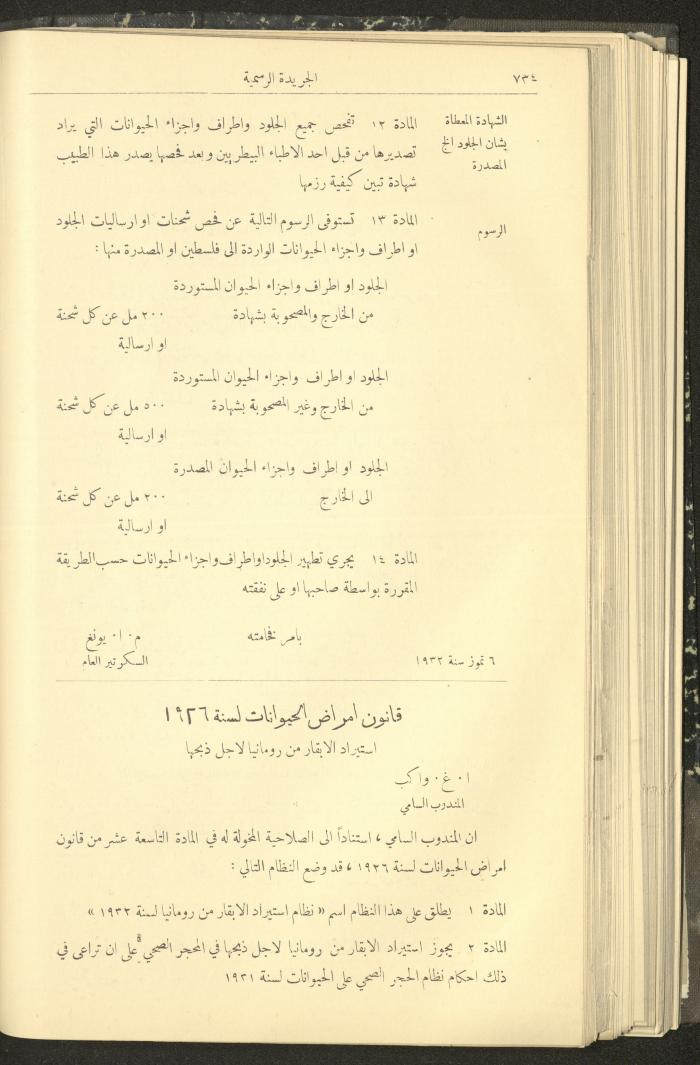 ٧٣٤
الجريدة الرسمية
الشهادة المعطاة
بشان الجلود الخ
المصدرة
المادة ١٢ تفحص جميع الجلود واطراف واجزاء الحيوانات التي يراد
تصديرها من قبل احد الاطباء البيطريين وبعد فحصها يصدر هذا الطبيب
شهادة تبين كيفية رزمها
الرسوم
المادة ١٣ تستوفى الرسوم التالية عن فحص شحنات او ارساليات الجلود
او اطراف واجزاء الحيوانات الواردة الى فلسطين او المصدرة منها :
الجلود او اطراف واجزاء الحيوان المستوردة
من الخارج والمصحوبة بشهادة ٢٠٠ مل عن كل شحنة
او ارسالية
الجلود او اطراف واجزاء الحيوان المستوردة
من الخارج وغير المصحوبة بشهادة ٥٠٠ مل عن كل شحنة
او ارسالية
الجلود او اطراف واجزاء الحيوان المصدرة
الى الخارج ٢٠٠ مل عن كل شحنة
او ارسالية
المادة ١٤ يجري تطهير الجلود او اطراف واجزاء الحيوانات حسب الطريقة
المقررة بواسطة صاحبها او على نفقته
بامر فخامته م٠ ا٠ يونغ
٦ تموز سنة ١٩٣٢ السكرتير العام
قانون امراض الحيوانات لسنة ١٩٢٦
استيراد الابقار من رومانيا لاجل ذبحها
ا٠ غ٠ واكب
المندوب السامي
ان المندوب السامي ، استناداً الى الصلاحية المخولة له في المادة التاسعة عشر من قانون
امراض الحيوانات لسنة ١٩٢٦ ، قد وضع النظام التالي :
المادة ١ يطلق على هذا النظام اسم « نظام استيراد الابقار من رومانيا لسنة ١٩٣٢ »
المادة ٢ يجوز استيراد الابقار من رومانيا لاجل ذبحها في المحجر الصحي على ان تراعى في
ذلك احكام نظام الحجر الصحي على الحيوانات لسنة ١٩٣١